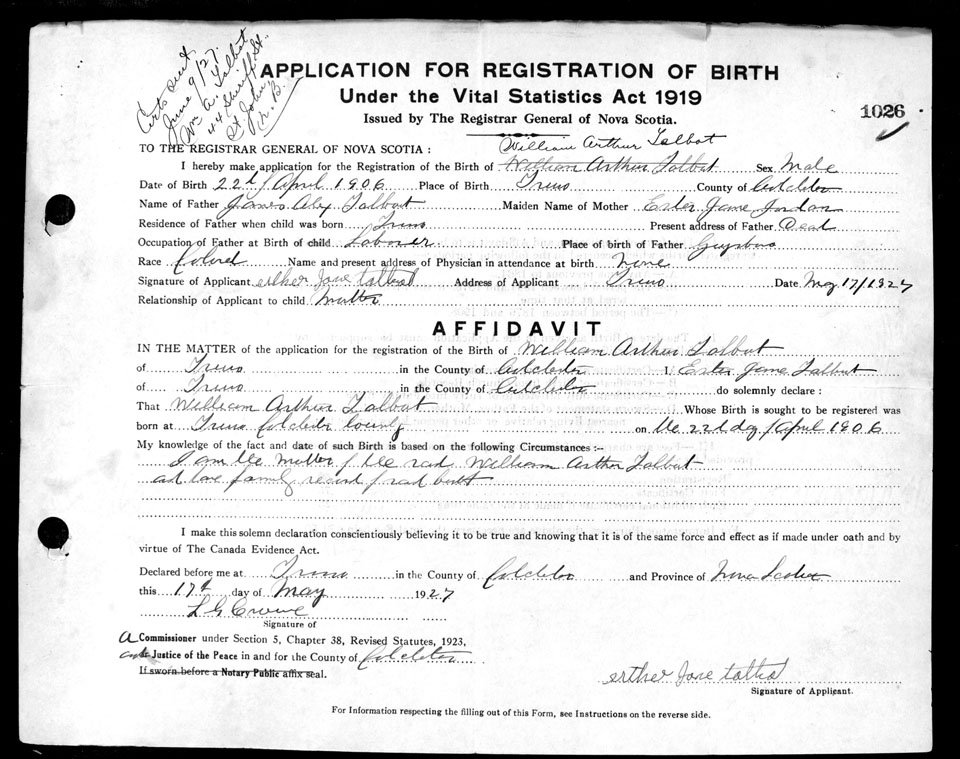 Certs sent
June 9/27.
Wm A. Talbot
44 Sheriff St.
St. John
N. B.
APPLICATION FOR REGISTRATION OF BIRTH
Under the Vital Statistics Act 1919
Issued by The Registrar General of Nova Scotia.
1026
William Arthur Talbot
TO THE REGISTRAR GENERAL OF NOVA SCOTIA:
I hereby make application for the Registration of the Birth of William Arthur Talbut Sex Male
Date of Birth 22d/April 1906 Place of Birth Truro County of Colchester
Name of Father James Alex Talbut Maiden Name of Mother Ester Jane Jordan
Residence of Father when child was born Truro Present address of Father Dead
Occupation of Father at Birth of child Laborer Place of birth of Father Guysboro
Race Colored Name and present address of Physician in attendance at birth None
Signature of Applicant erther Jane Address of Applicant Truro Date May 17/1927
Relationship of Applicant to child Mother
AFFIDAVIT
IN THE MATTER of the application for the registration of the Birth of William Arthur Talbut
of Truro in the County of Colchester I, Ester Jane Talbut
of Truro in the County of Colchester do solemnly declare:
That William Arthur Talbut Whose Birth is sought to be registered was
born at Truro Colchester County on the 22d day/April 1906
My knowledge of the fact and date of such Birth is based on the following Circumstances:-
I am the Mother / the said William Arthur Talbut
and have family record / said birth
I make this solemn declaration conscientiously believing it to be true and knowing that it is of the same force and effect as if made under oath and by
virtue of The Canada Evidence Act.
Declared before me at Truro in the County of Colchester and Province of Nova Scotia
this 17th day of May 1927
L G Crowe
Signature of
A Commissioner under Section 5, Chapter 38, Revised Statutes, 1923,
Justice of the Peace in and for the County of Colchester
If sworn before a Notary Public affix seal.
erther Jane
Signature of Applicant.
For Information respecting the filling out of this Form, see Instructions on the reverse side.